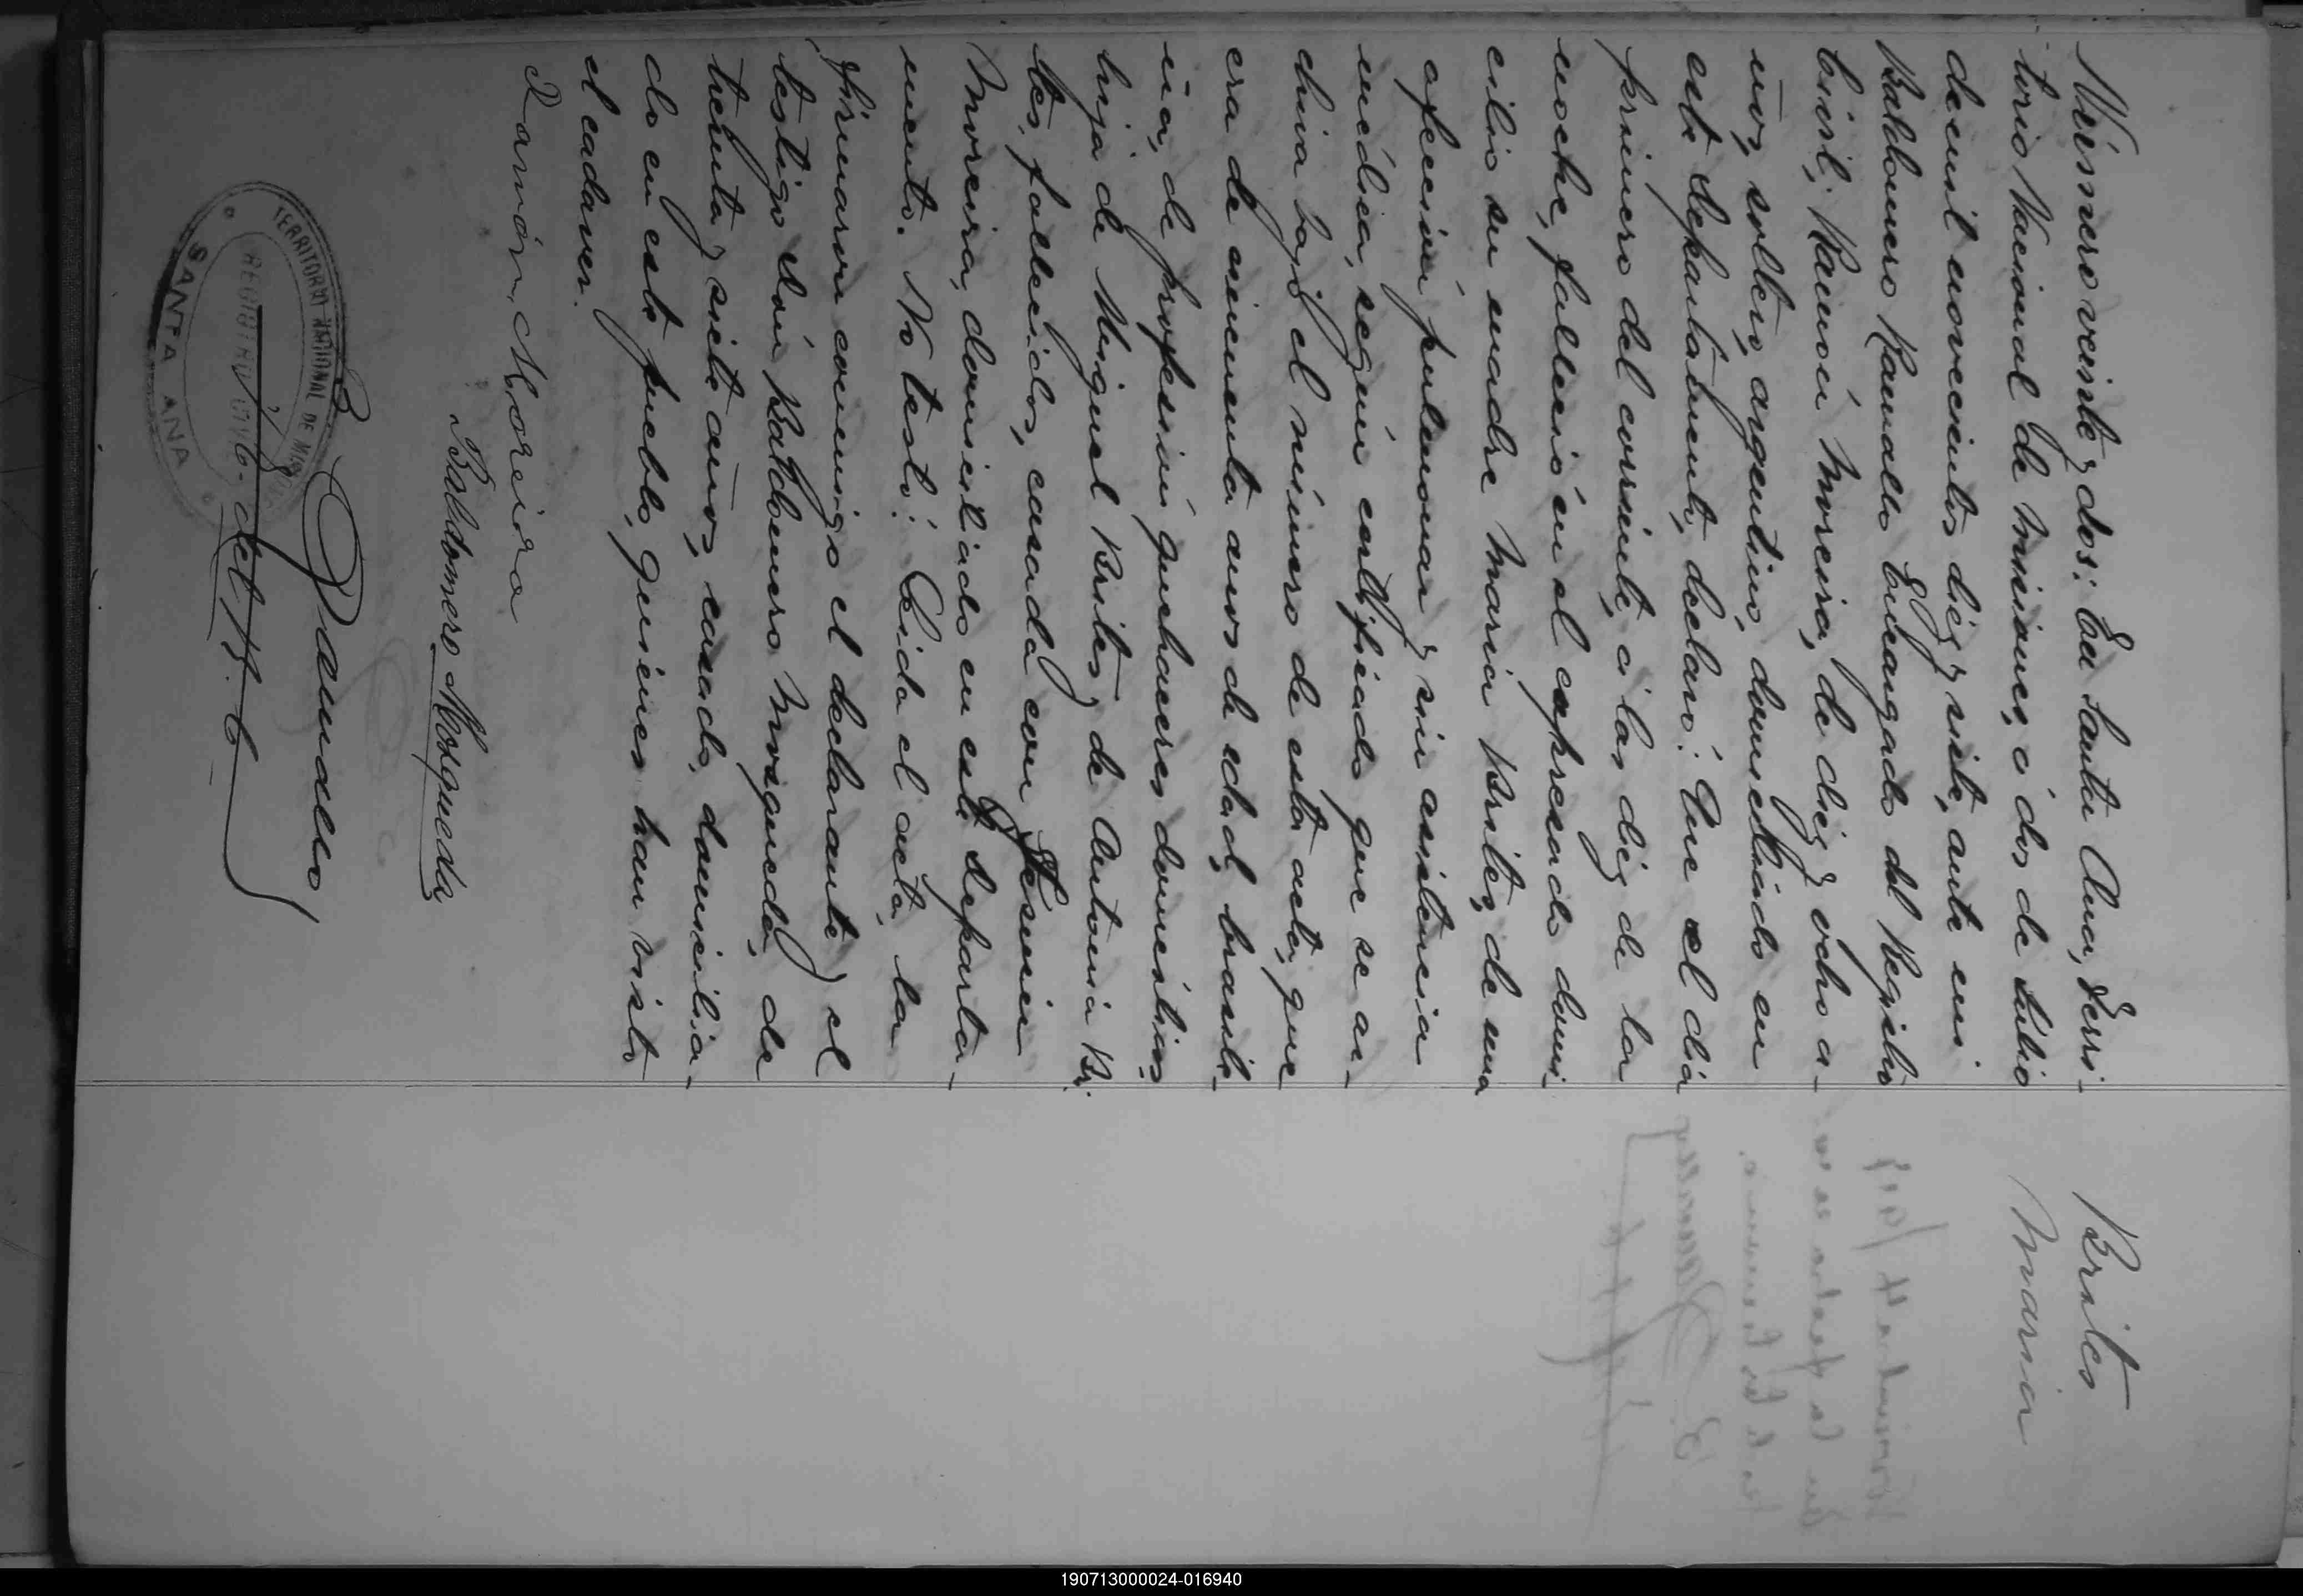 Número veinte y dos: En Santa Ana, Terri-
torio Nacional de Misiones, á dos de Julio
de mil novecientos diez y siete, ante mi
Baldomero Ramallo Encargado del Registro
Civil; Ramón Moreira, de diez y ocho a-
ños, soltero, argentino, domiciliado en
este departamento, declaró: Que el día
primero del corriente, á las diez de la
noche, falleció en el expresado domi-
cilio su madre Maria Brites, de una
afección pulmonar y sin asistencia
médica, según certificado que se ar-
chiva bajo el número de esta acta; que
era de cincuenta años de edad, brasile-
ña, de profesión quehaceres domésticos,
hija de Miguel Brites, y de Antonia Bri-
tes, fallecidos, casada con
Moreira, domiciliado en este departa-
mento. No testó. Leida el acta, la
firmaron conmigo el declarante y el
testigo Don Baldomero Mosqueda, de
treinta y siete años, casado, domicilia-
do en este pueblo, quienes han visto
el cadaver.
Ramón Moreira
Baldomero Mosqueda
B Ramallo
TERRITORIO NACIONAL DE MISIONES
REGISTRO CIVIL
SANTA ANA
Brites
Maria
190713000024-016940